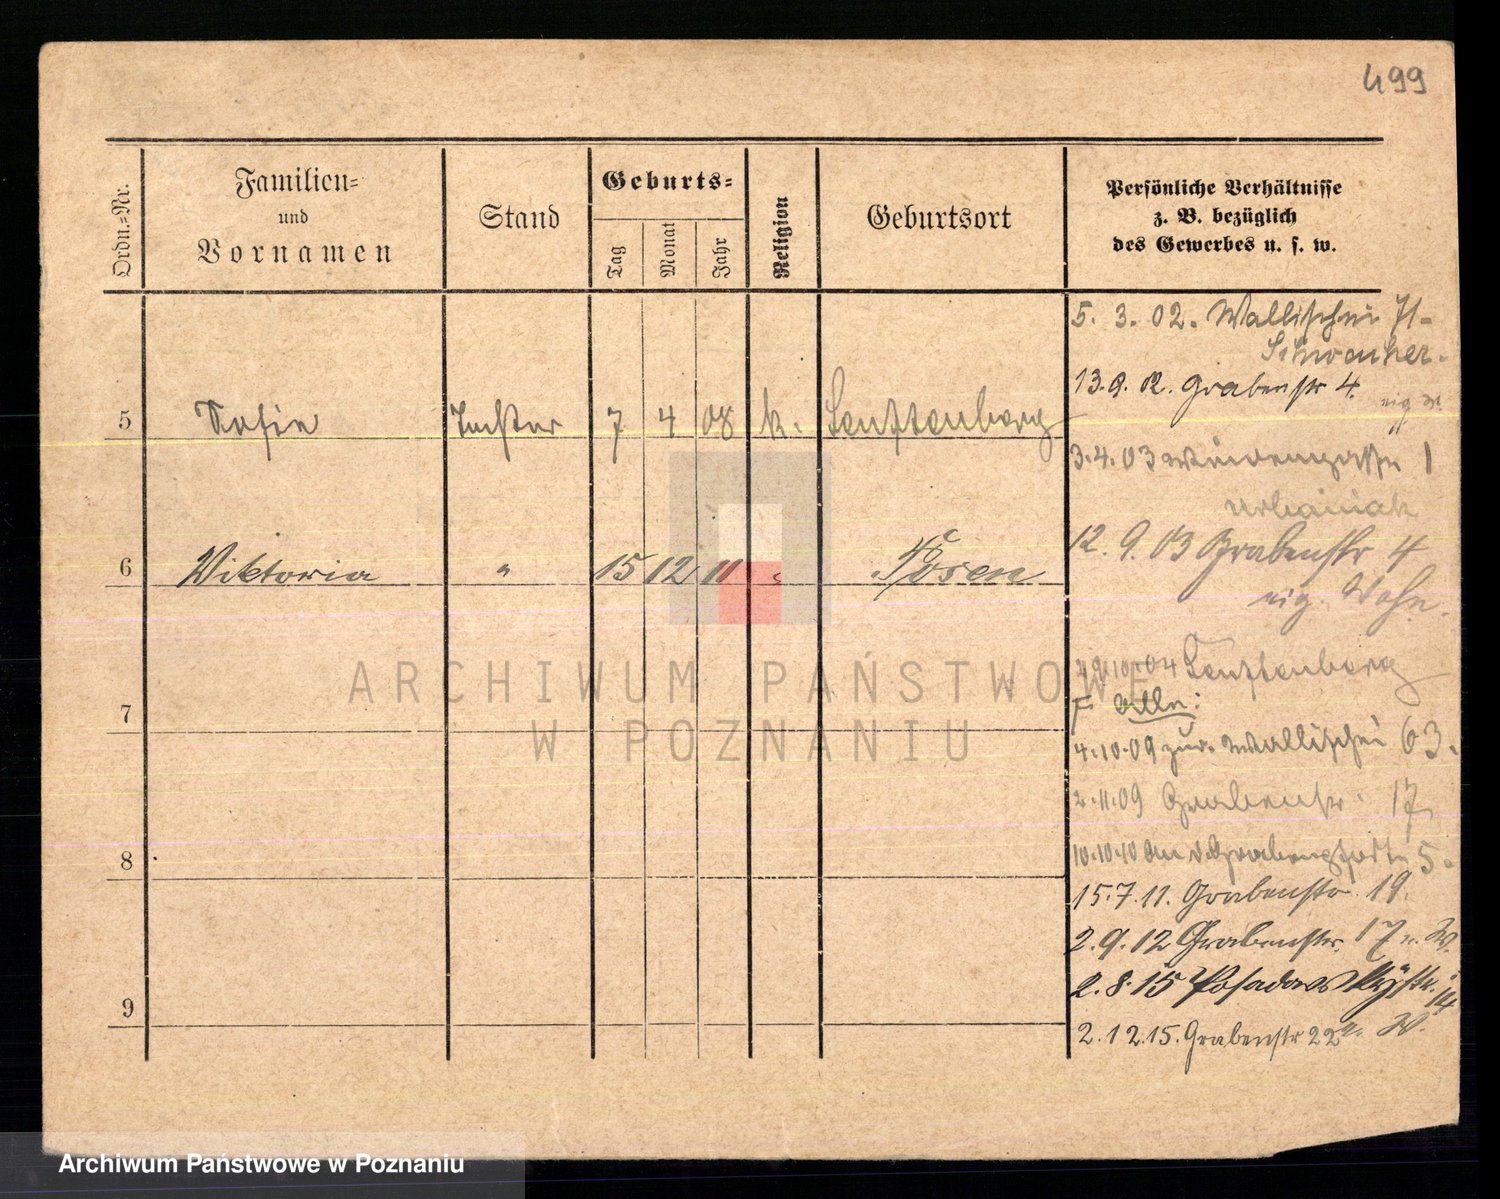 499
Ordn.-Nr.
Familien-
und
Vornamen
Stand
Geburts-
Tag
Monat
Jahr
Religion
Geburtsort
Persönliche Verhältnisse
z. B. bezüglich
des Gewerbes u. s. w.
5. 3. 02. Wallischei 71
13.9.02. Grabenstr 4.
5 Sofie Tochter 7 4 08 k. Senftenberg
3.4.03 1
Urbaniak
6 Viktoria " 15 12 11 " Posen
12. 9. 03 Grabenstr 4
eig. Wohn.
10.04 Senftenberg
7
4.10.09 zur. Wallischei 63.
2.11.09 Grabenstr. 17
8
10.10.10 5.
15.7.11. Grabenstr. 19.
2.9.12 Grabenstr. 17 W.
2.8.15 Posadowskystr. 14
9
2.12.15. Grabenstr 22 W.
ARCHIWUM PAŃSTWOWE
W POZNANIU
Archiwum Państwowe w Poznaniu